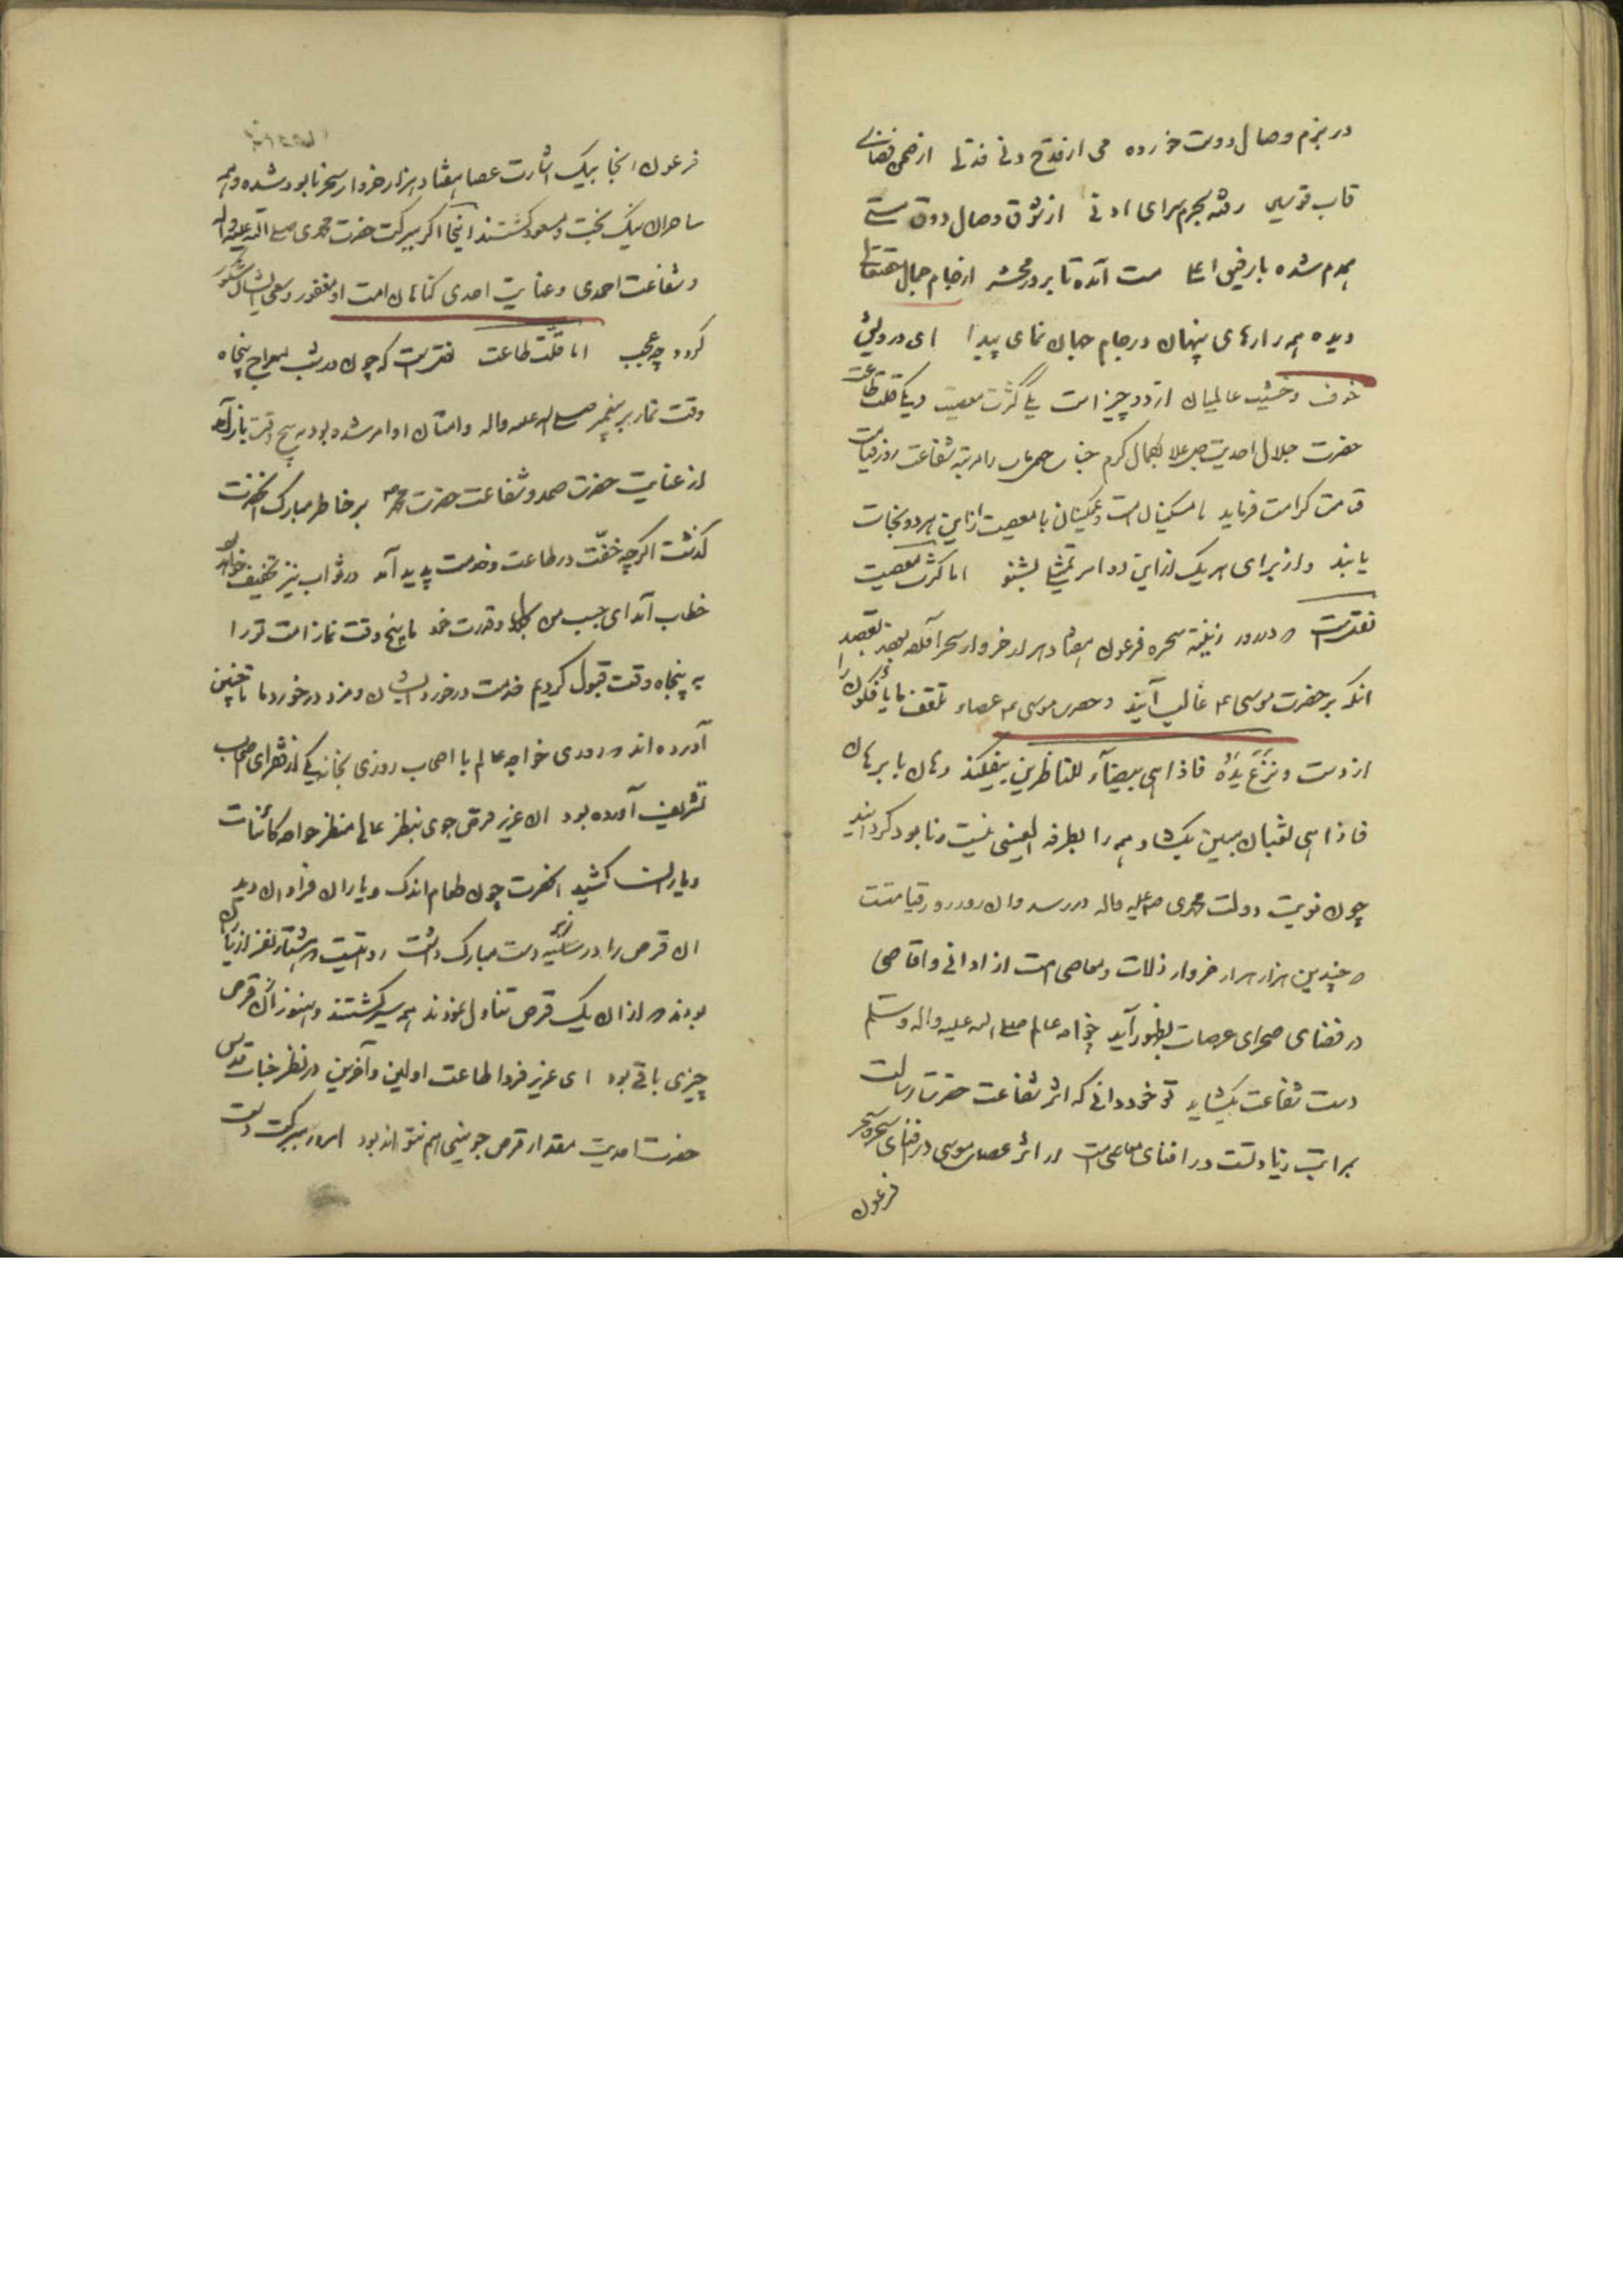 در بزم وصال دوست خورده می از قدح دنی فتدلی از خم
قاب قوسین رفته بحرم سرای ادنی از شوق وصال دوق مستی
همدم شده با رفیق اعلی مست آمده تا بروز محشر از جام جمال حقتعالی
دیده همه رازهای پنهان در جام جهان نمای پیدا ای درویش
خوف و خشیت عالمیان از دو چیز است یکی کثرت معصیت و یکی قلت طاعت
حضرت جلال احدیت جل علا بکمال کرم جناب را مرتبه شفاعت روز قیامت
قامت کرامت فرماید تا مسکینان امت و غمگینان با معصیت از این هر دو نجات
یابند و از برای هر یک از این دو امر تمثیلی بشنو اما کثرت معصیت
نقدست که در روز زینة سحره فرعون هفتاد هزار خروار سحر
انکه بر حضرت موسی ع غالب آیند و حضرت موسی ع عصاء تلقف ما یافکون را
از دست و نزع یده فاذا هی بیضآء للناظرین بیفکند و هان با برهان
فاذا هی ثعبان مبین بگشاد و همه را بطرفة العینی نیست و نابود گردانید
چون نوبت دولت محمدی ص علیه واله در رسد و ان روز روز قیامتست
که چندین هزار هزار خروار ذلات و معاصی امت از ادانی و اقاصی
در فضای صحرای عرصات بظهور آید خواجه عالم صلی الله علیه واله وسلم
دست شفاعت بگشاید تو خود دانی که اثر شفاعت حضرت رسالت
بمراتب زیادتست در افنای معاصی امت از اثر عصای موسی در فنای سحره سحر
فرعون
فرعون انجا بیک اشارت عصا هفتاد هزار خروار سحر نابود شده و همه
ساحران نیک بخت و مسعود گشتند اینجا اگر ببرکت حضرت محمدی صلی الله علیه واله
و شفاعت احمدی و عنایت احدی گناهان امت او مغفور و سعی ایشان مشکور
گردد چه عجب اما قلت طاعت نقدست که چون در شب معراج پنجاه
وقت نماز بر پیغمبر صلی الله علیه واله و امتان او امر شده بود به پنج وقت باز آمد
از عنایت حضرت صمد و شفاعت حضرت محمد ص بر خاطر مبارک انحضرت
گذشت اگر چه خفّت در طاعت و خدمت پدید آمد در ثواب نیز تخفیف خواهد بود
خطاب آمد ای حبیب من بجلال و قدرت خود ما پنج وقت نماز امت ترا
به پنجاه وقت قبول کردیم خدمت در خورد ایشان و مزد در خورد ما تا چنین
آورده اند که روزی خواجه عالم با اصحاب روزی بخانه یکی از فقرای صحابه
تشریف آورده بود ان عزیز قرص جوی بنظر عالی منظر خواجه کائنات
و یارانش کشید انحضرت چون طعام اندک و یاران فراوان دید
ان قرص را در زیر سایه دست مبارک داشت روایتست که هشتاد نفر از یاران
بودند که از ان یک قرص تناول نمودند همه سیر گشتند و هنوز از آن قرص
چیزی باقی بود ای عزیز فردا طاعت اولین و آخرین در نظر جناب قدس
حضرت احدیت مقدار قرص جوینی هم نتواند بود امروز ببرکت دست